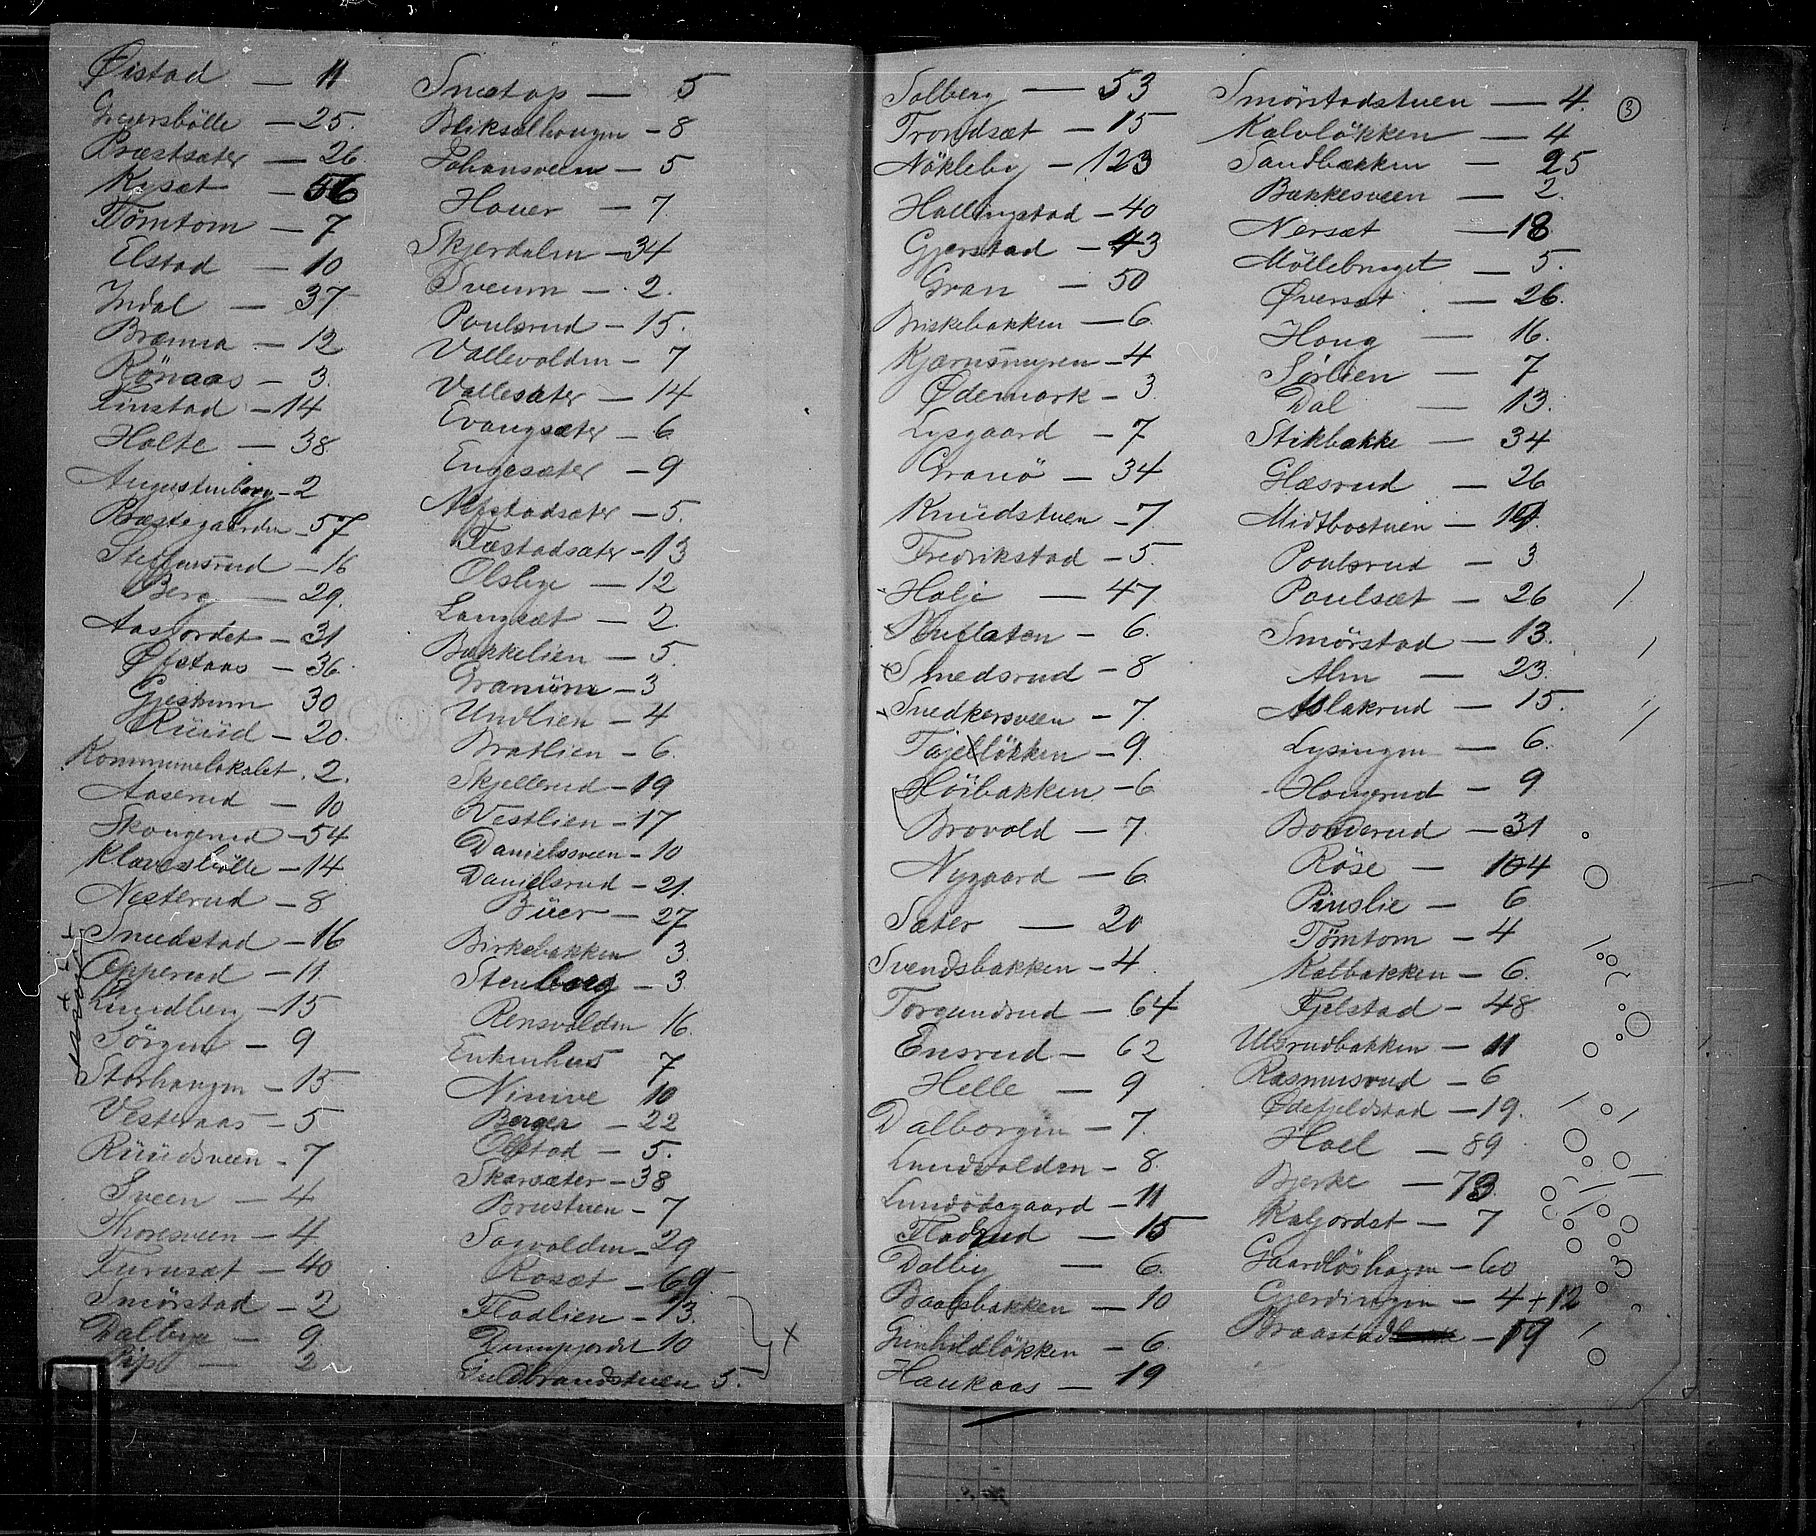 Øistad — 11
Greversbölle — 25.
Præstsæter — 26.
Kiset — 56
Tömtom — 7
Elstad — 10
Indal — 37
Brænna — 12
Rönaas — 3.
Linstad — 14
Holte — 38
Augustenborg — 2
Præstegaarden — 57
Steffensrud — 16
Berg — 29.
Aasfordet — 31
Øfstaas — 36.
Gjestrum 30
Rüüd — 20.
Kommunelokalet. 2.
Aaserud — 10
Skougerud — 54
Klævesbölle — 14
Nesterud — 8
Smedstad — 16
Opperud — 11
Lundben — 15
Sörgen — 9
Storhaugen — 15
Vesteraas — 5
Rüüdsveen — 7
Sveen — 4
Thoresveen — 4
Furuset — 40
Smörstad — 2
Dalbye — 9
Pip — 2
Snetop — 5
Bliksælhougen — 8
Johansveen — 5
Houer — 7.
Skjerdalen — 34
Sveum — 2.
Poulsrud — 15.
Vallevolden — 7
Vallesæter — 14
Evangsæter — 6
Engesæter — 9
Alfstadsæter — 5.
Tæstadsæter — 13
Olsbye — 12
Langsæt — 2.
Bakkelien — 5.
Granüm — 3
Undlien — 4
Bratlien — 6.
Skjellerud — 19
Vestlien — 17
Danielssveen — 10
Danielsrud — 21.
Büer — 27
Birkebakken 3.
Stenberg — 3.
Rensvolden 16.
Enkenhus 7
Ninive 10
Berger — 22
Olstad — 5.
Skarsæter — 38
Brustuen — 7
Sagvolden — 29
Roset — 69.
Fladlien — 13.
10
Guldbrandstuen 5.
Solberg — 53
Trondsæt — 15
Nökleby — 123
Hallingstad — 40
Gjerstad — 43
Gran — 50
Briskebakken — 6.
Kjærnsmyren — 4
Ødemark — 3.
Lysgaard — 7
Granö — 34
Knüdstuen — 7.
Fredrikstad — 5.
Holje — 47
Bruflaten — 6.
Smedsrud — 8
Snedkersveen — 7.
Tajetlökken — 9.
Höibakken — 6
Brovold — 7.
Nygaard — 6.
Sæter — 20
Svendsbakken — 4.
Torgundrud — 64
Ensrud — 62
Helle — 9
Dalborgen — 7.
Lundvolden — 8.
Lundödegaard — 11
Fladrud — 15
Dalby — 6.
Baalsbakken — 10
Gunhildlökken — 6.
Haukaas — 19
Smörstadstuen — 4.
③
Kalvlökken — 4
Sandbækken — 25
Bakkesveen — 2.
Nerset — 18
Möllebruget — 5.
Øverset — 26.
Houg — 16.
Sørlien — 7
Dal — 13.
Stikbakke — 34
Glæsrud — 26
Midtbostuen — 19.
Poulsrud — 3
Poulsæt — 26
Smörstad — 13.
Alm — 23.
Aslakrud — 15.
Lysingen — 6.
Hougerud — 9
Bonderud — 31
Röse — 104
Pinslie — 6
Tömtom — 4
Katbakken — 6.
Fjelstad — 48
Ulsrudbakken — 11
Rasmusrud — 6
Ødefjeldstad — 19.
Hoel — 89
Bjerke — 73.
Kalfjordet — 7
Gaardlöshagen — 60
Gjerdingen — 4 + 12
Braastad — 19